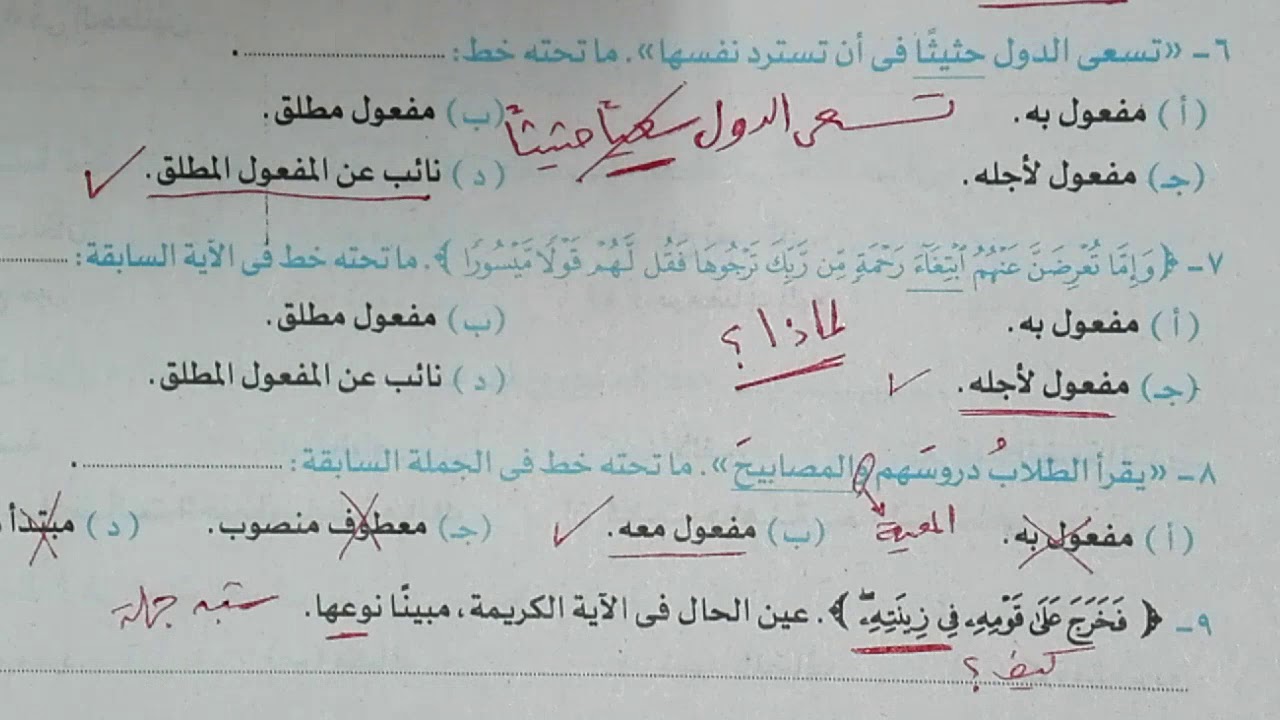 ٦- «تسعى الدول حثيثًا فى أن تسترد نفسها». ما تحته خط: ..............
(أ) مفعول به. (ب) مفعول مطلق.
تسعى الدول سعيًا حثيثًا
(جـ) مفعول لأجله. (د) نائب عن المفعول المطلق.
٧- ﴿وَإِمَّا تُعْرِضَنَّ عَنْهُمُ ٱبْتِغَآءَ رَحْمَةٍ مِّن رَّبِّكَ تَرْجُوهَا فَقُل لَّهُمْ قَوْلًا مَّيْسُورًا﴾. ما تحته خط فى الآية السابقة: ..............
(أ) مفعول به. (ب) مفعول مطلق.
لماذا؟
(جـ) مفعول لأجله. (د) نائب عن المفعول المطلق.
٨- «يقرأ الطلابُ دروسَهم والمصابيحَ». ما تحته خط فى الجملة السابقة: ..............
(أ) مفعول به. المعية (ب) مفعول معه. (جـ) معطوف منصوب. (د) مبتدأ
٩- ﴿فَخَرَجَ عَلَىٰ قَوْمِهِۦ فِى زِينَتِهِۦ﴾. عين الحال فى الآية الكريمة، مبينًا نوعها. شبه جملة
كيف؟